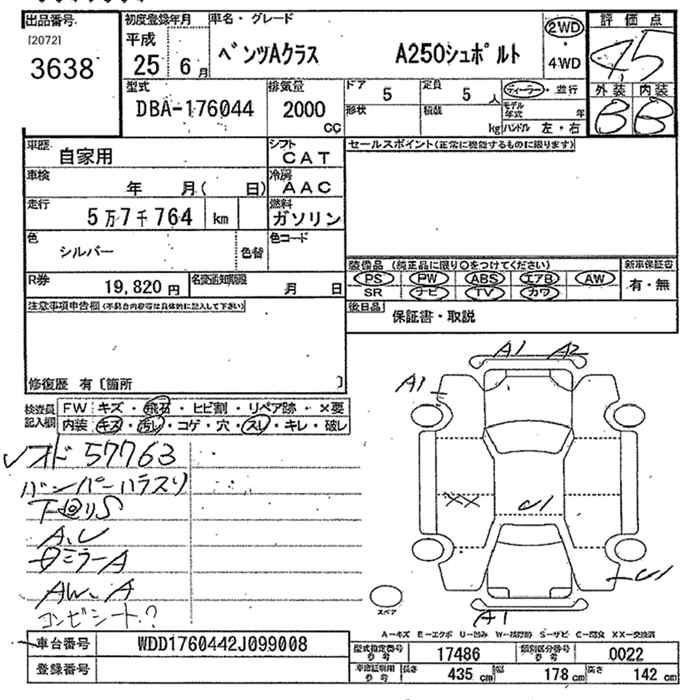 出品番号
[2072]
3638
初度登録年月
平成
25 6月
車名・グレード
ベンツAクラス A250シュポルト
2WD
・
4WD
評価点
4.5
外装 内装
B B
型式
DBA-176044
排気量
2000
CC
ドア
5
定員
5 人
ディーラー・並行
形状
積載
kg
モデル年式 年
ハンドル 左・右
車歴
自家用
シフト
CAT
車検
年 月( 日)
冷房
AAC
走行
5万7千764 km
燃料
ガソリン
色
シルバー
色替
色コード
R券
19,820円
名変通知期限
月 日
セールスポイント(正常に機能するものに限ります)
装備品 (純正品に限り○をつけてください)
PS PW ABS エアB AW
SR ナビ TV カワ
新車保証書
有・無
後日品
保証書・取説
注意事項申告欄(不具合内容等は具体的に記入して下さい)
修復歴 有〔箇所 〕
検査員
記入欄
FW キズ・飛石・ヒビ割・リペア跡・×要
内装 キズ・汚レ・コゲ・穴・スレ・キレ・破レ
メオド 57763
バンパーハラスリ
下回りS
A,U
ミラーA
AW,A
コンビシート?
A1 A2
A1
XX
U1
U1
A1
スペア
A－キズ E－エクボ U－凹み W－補修跡 S－サビ C－腐食 XX－交換済
車台番号 WDD1760442J099008
登録番号
型式指定番号 17486
類別区分番号 0022
車検証御用番号
長さ 435 cm
幅 178 cm
高さ 142 cm